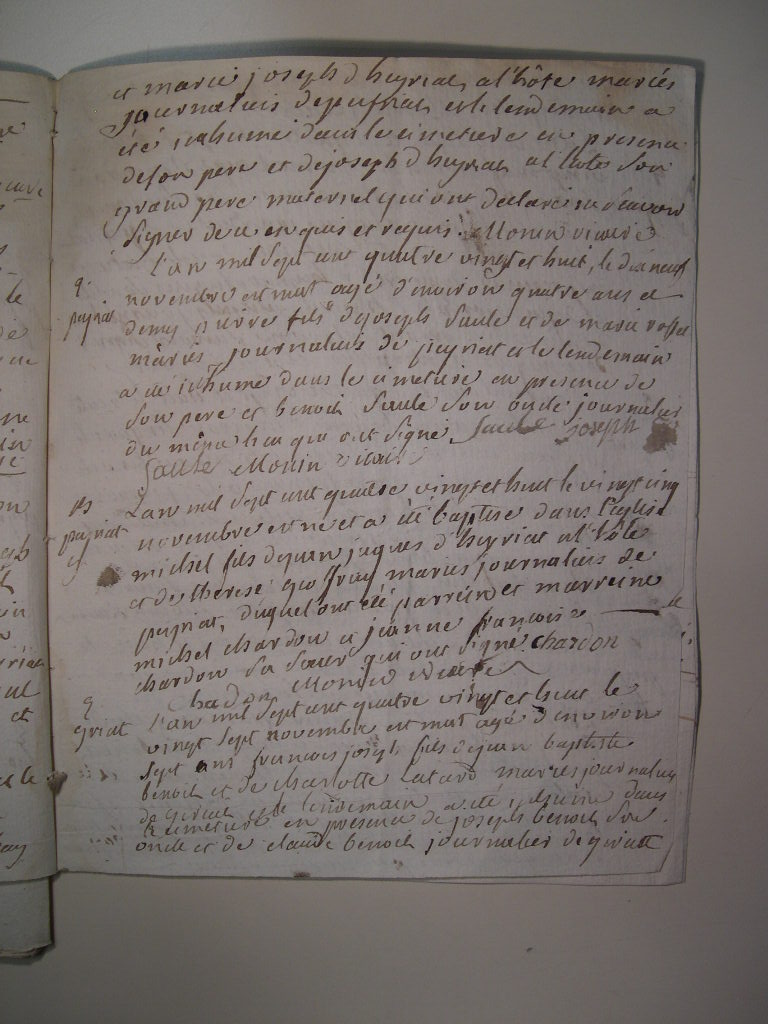 et marie joseph d heyriat, a l'hôte mariés
journaliers de peyriat et le lendemain a
été inhumé dans le cimetiere en presence
de son pere et de joseph d heyriat al'hôte son
grand pere maternel qui ont declaré ne scavoir
signer de ce enquis et requis. Monin vicaire
l'an mil sept cent quatre vingt et huit, le dix neuf
novembre est mort agé d'environ quatre ans et
peyriat
demy pierre fils de joseph saule et de marie rosset
mariés journaliers de peyriat et le lendemain
a été inhumé dans le cimetiere en presence de
son pere et benoit saule son oncle journalier
du même lieu qui ont signé saule joseph
saule Monin vicaire
Lan mil sept cent quatre vingt et huit le vingt cinq
peyriat
novembre est né et a été baptisé dans l'eglise
michel fils de jean jaques d heyriat al'hôte
et de therese mariés journaliers de
peyriat, duquel ont été parrein et marreine
michel chardon et jeanne francoise
chardon sa soeur qui ont signé chardon
chadon Monin vicaire
L'an mil sept cent quatre vingt et huit le
giriat
vingt sept novembre est mort agé d'environ
sept ans francois joseph fils de jean baptiste
benoit et de charlotte mariés journaliers
de giriat et le lendemain a été inhumé dans
le cimetiere en presence de joseph benoit son
oncle et de claude benoit journalier de giriat